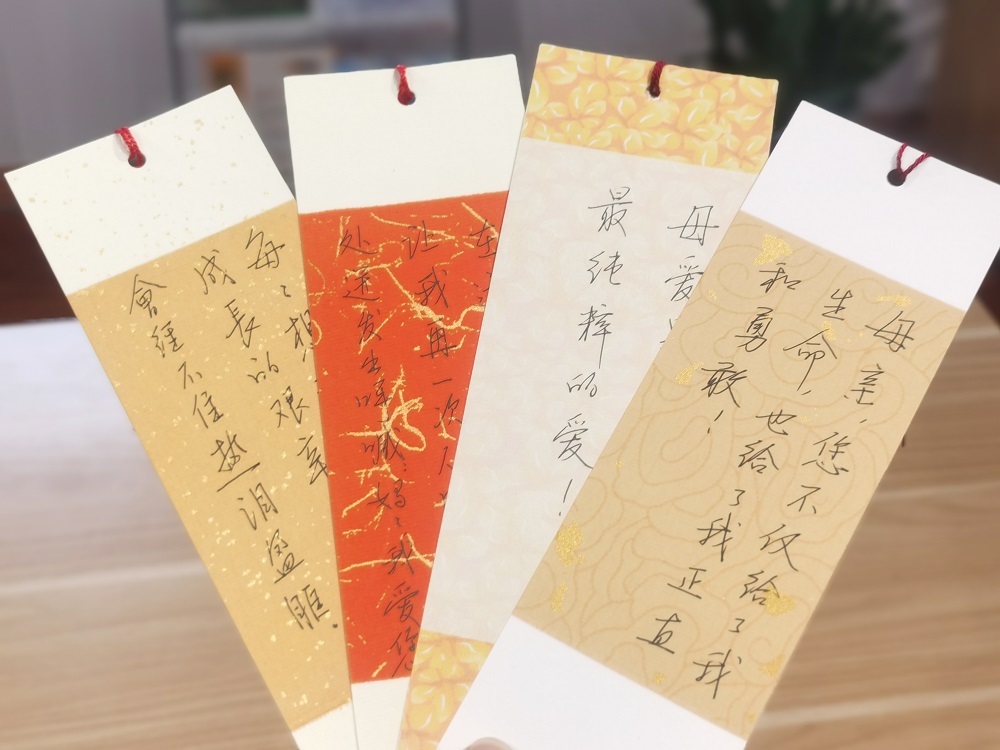 每々想
成長的艰辛
會經不住热泪盈眶.
在
让我再一次
处 发出 喊:妈々我爱您
母爱
最纯粹的爱!
母亲,您不仅给了我
生命,也给了我正直
和勇敢!